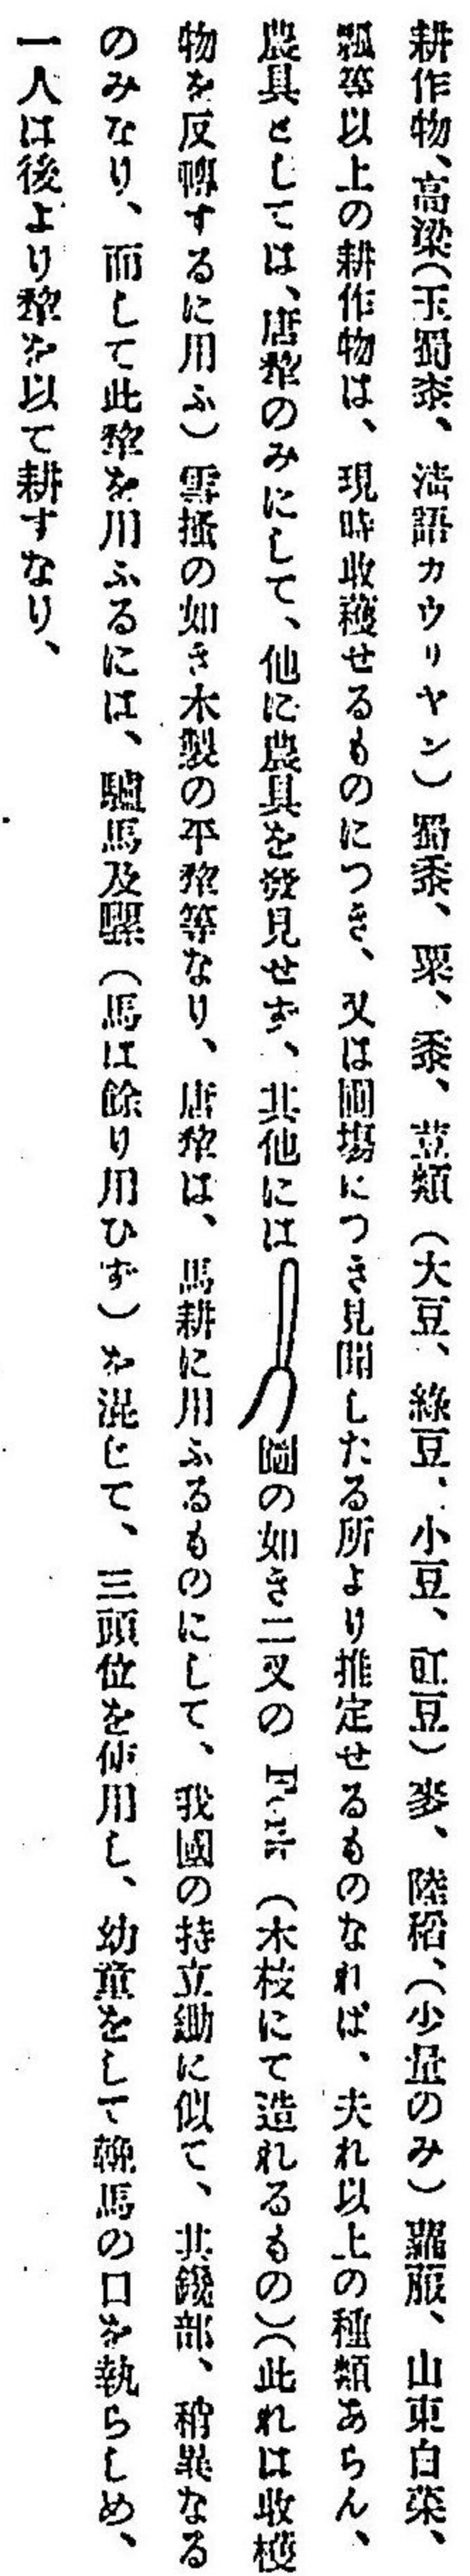 耕作物、高梁（玉蜀黍、淸語カウリヤン）蜀黍、粟、黍、荳類（大豆、綠豆、小豆、豇豆）麥、陸稻、（少量のみ）蘿蔔、山東白菜、
瓢等以上の耕作物は、現時收穫せるものにつき、又は圃塲につき見聞したる所より推定せるものなれば、夫れ以上の種類あらん、
農具としては、唐犂のみにして、他に農具を發見せず、其他には圖の如き二叉の Fork （木枝にて造れるもの）（此れは收穫
物を反轉するに用ふ）雪搔の如き木製の平犂等なり、唐犂は、馬耕に用ふるものにして、我國の持立鋤に似て、其鑱部、稍異なる
のみなり、而して此犂を用ふるには、驢馬及騾（馬は餘り用ひず）を混じて、三頭位を使用し、幼童をして輓馬の口を執らしめ、
一人は後より犂を以て耕すなり、